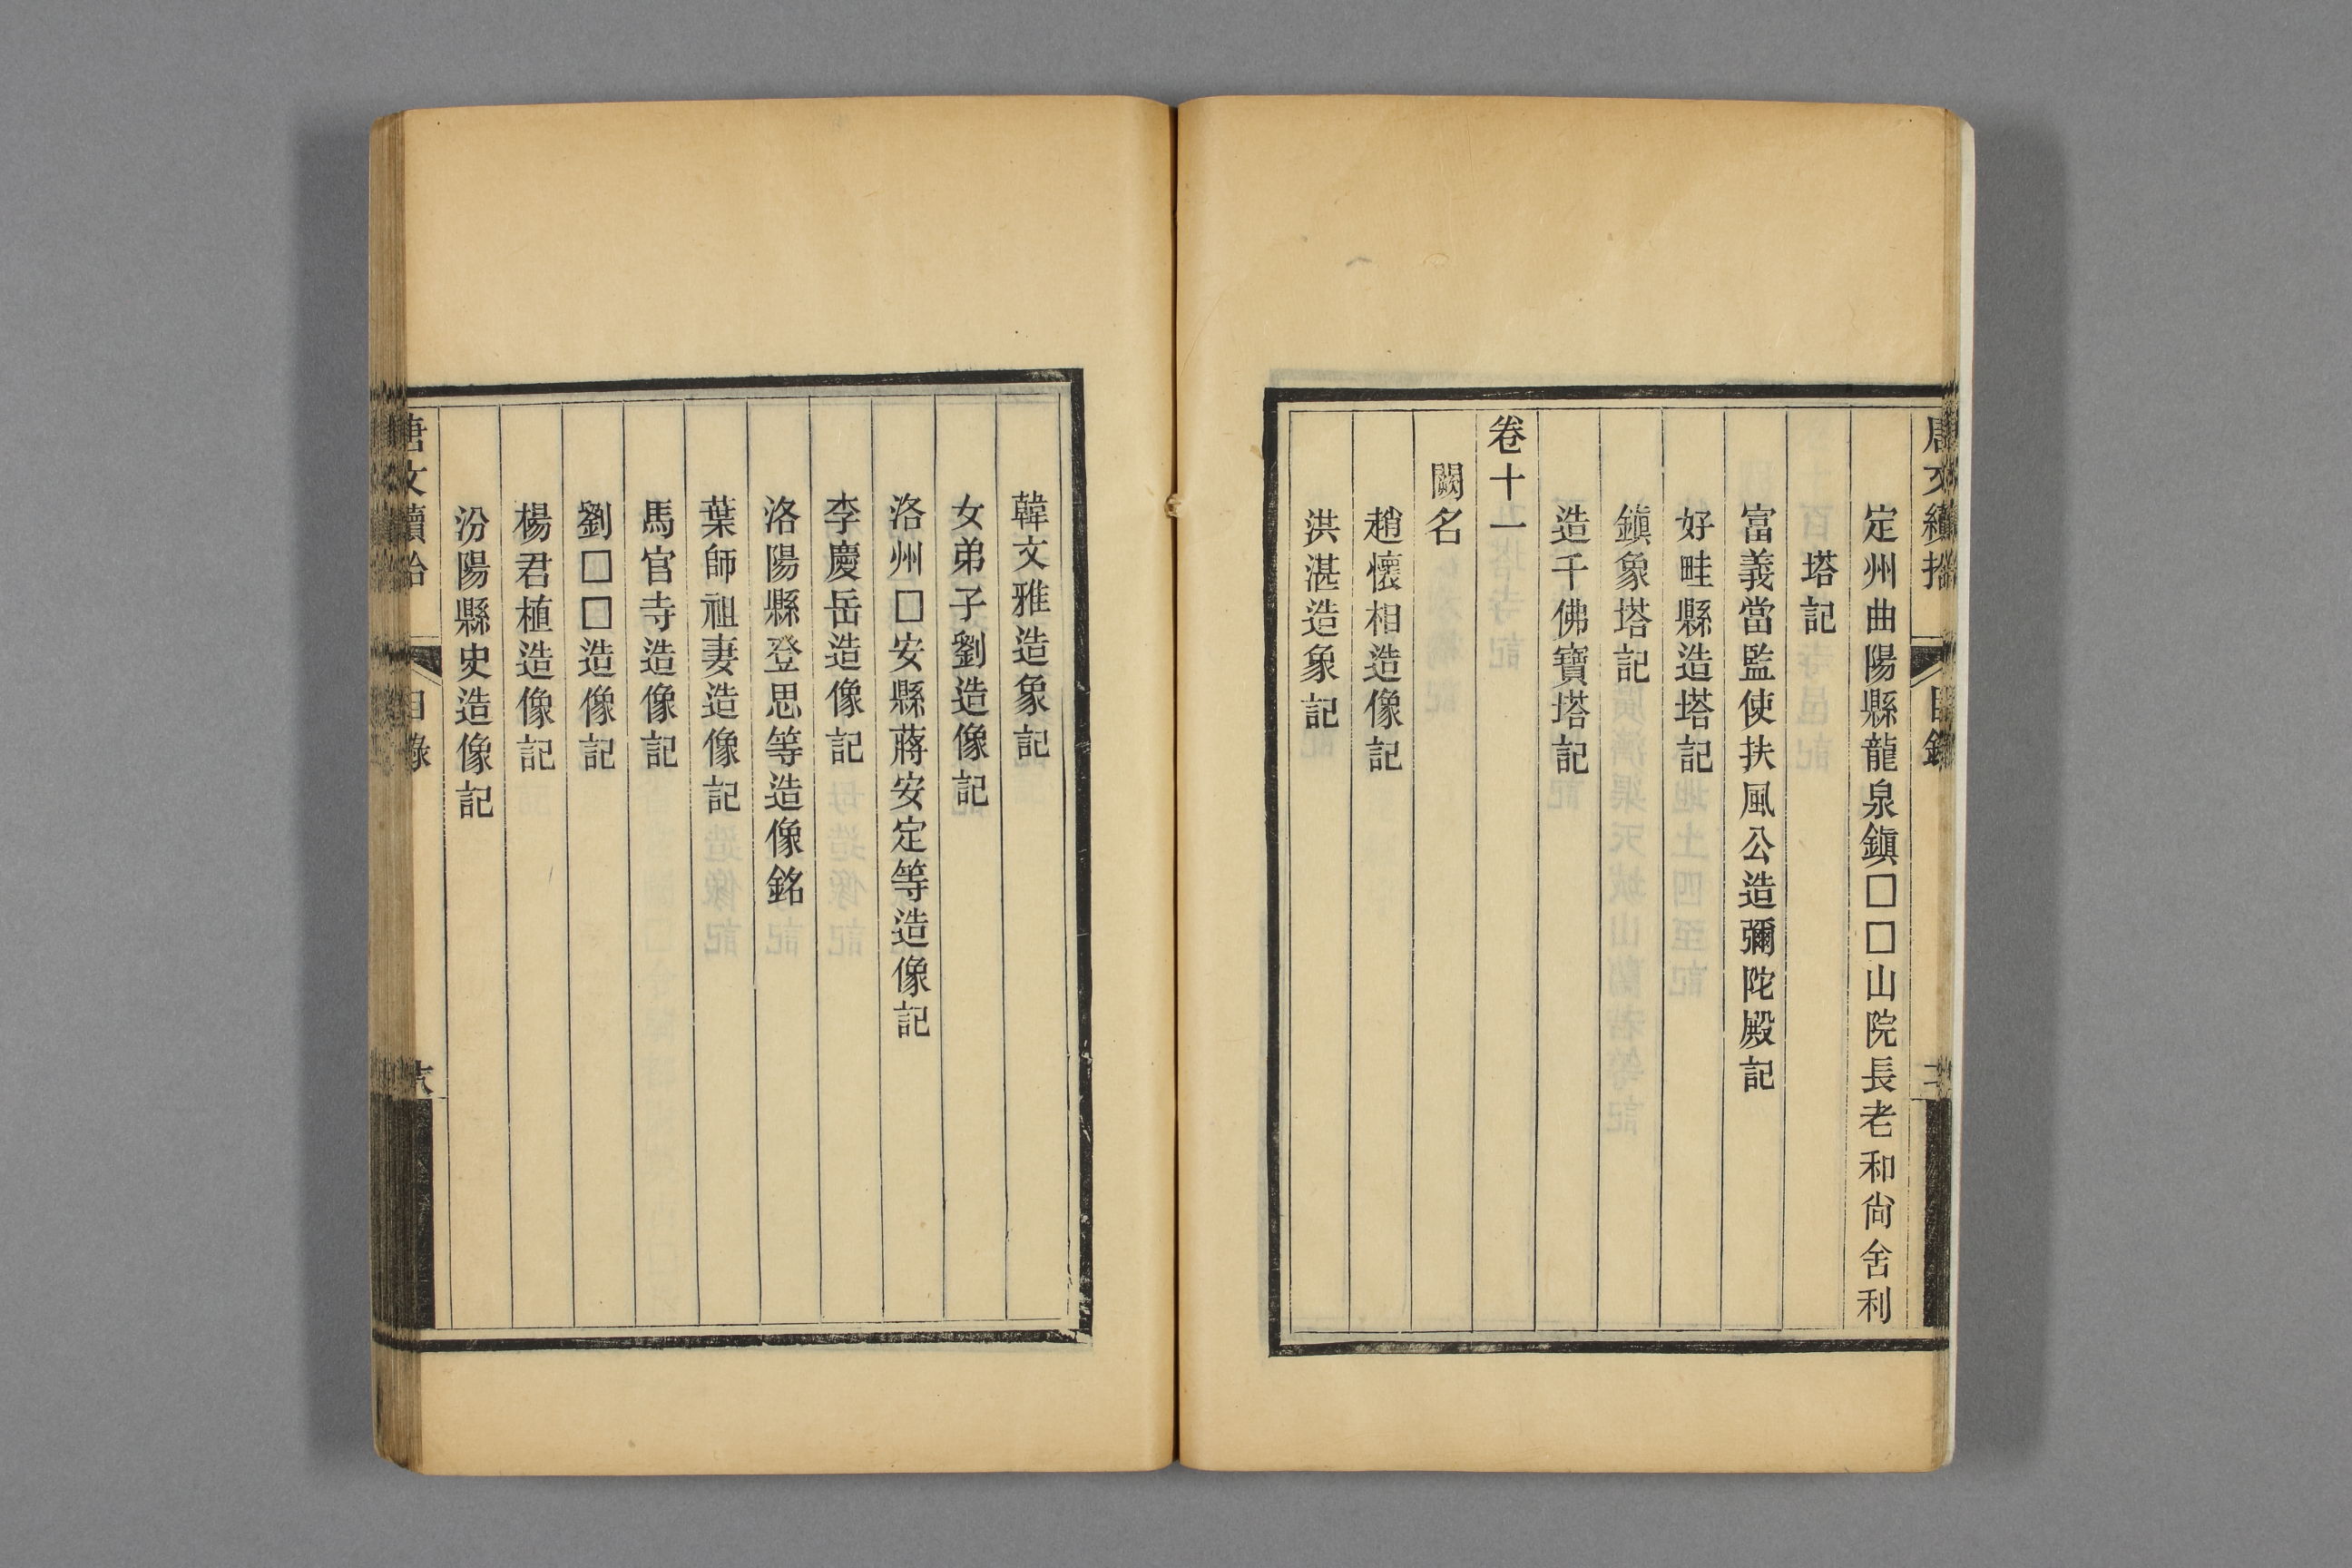 定州曲陽縣龍泉鎭□□山院長老和尙舍利
塔記
富義當監使扶風公造彌陀殿記
好畦縣造塔記
鎭象塔記
造千佛寶塔記
卷十一
闕名
趙懷相造像記
洪湛造象記
韓文雅造象記
女弟子劉造像記
洛州□安縣蔣安定等造像記
李慶岳造像記
洛陽縣登思等造像銘
葉師祖妻造像記
馬官寺造像記
劉□□造像記
楊君植造像記
汾陽縣史造像記
唐文續拾
目錄